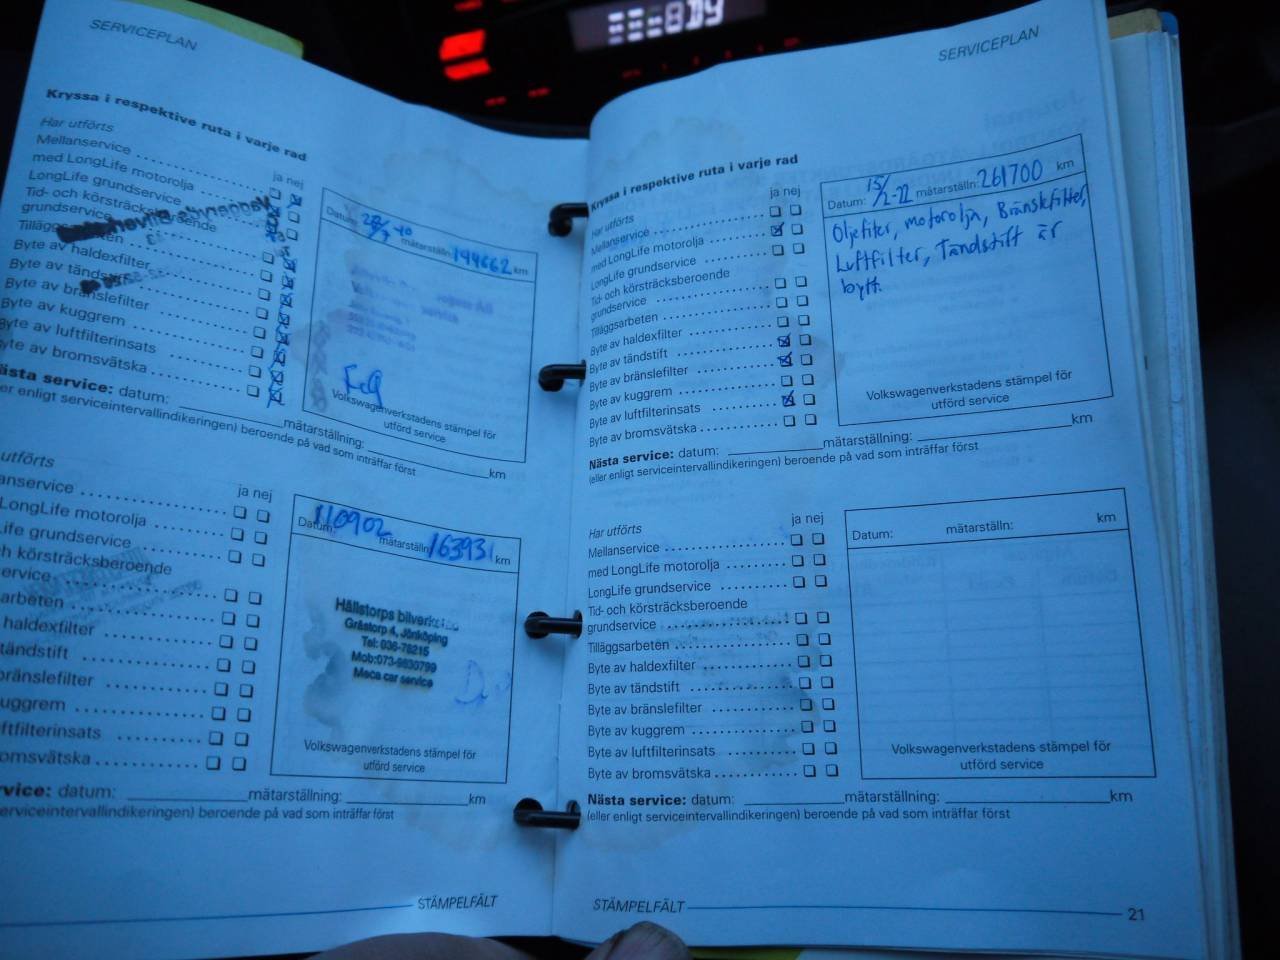 SERVICEPLAN
Kryssa i respektive ruta i varje rad
Har utförts
ja nej
Mellanservice
med LongLife motorolja
LongLife grundservice
Tid- och körsträcksberoende
grundservice
Byte av haldexfilter
Byte av tändstift
Byte av bränslefilter
Byte av kuggrem
Byte av luftfilterinsats
Byte av bromsvätska
Nästa service: datum: mätarställning: km
(eller enligt serviceintervallindikeringen) beroende på vad som inträffar först
Datum: mätarställn: 144662 km
Volkswagenverkstadens stämpel för
utförd service
utförts
ja nej
LongLife motorolja
grundservice
körsträcksberoende
haldexfilter
tändstift
bränslefilter
kuggrem
bromsvätska
datum: mätarställning: km
serviceintervallindikeringen) beroende på vad som inträffar först
Datum: 110902 mätarställn: 163931 km
Hällstorps
Grästorp 4, Jönköping
Tel: 036-76215
Mob:073-9830799
Meca car service
Volkswagenverkstadens stämpel för
utförd service
STÄMPELFÄLT
SERVICEPLAN
Kryssa i respektive ruta i varje rad
ja nej
Har utförts
Mellanservice
med LongLife motorolja
LongLife grundservice
Tid- och körsträcksberoende
grundservice
Tilläggsarbeten
Byte av haldexfilter
Byte av tändstift
Byte av bränslefilter
Byte av kuggrem
Byte av luftfilterinsats
Byte av bromsvätska
Nästa service: datum: mätarställning: km
(eller enligt serviceintervallindikeringen) beroende på vad som inträffar först
Datum: 15/2-22 mätarställn: 261700 km
Oljefilter, motorolja, Bränslefilter,
Luftfilter, Tändstift är
bytt.
Volkswagenverkstadens stämpel för
utförd service
ja nej
Har utförts
Mellanservice
med LongLife motorolja
LongLife grundservice
Tid- och körsträcksberoende
grundservice
Tilläggsarbeten
Byte av haldexfilter
Byte av tändstift
Byte av bränslefilter
Byte av kuggrem
Byte av luftfilterinsats
Byte av bromsvätska
Nästa service: datum: mätarställning: km
(eller enligt serviceintervallindikeringen) beroende på vad som inträffar först
Datum: mätarställn: km
Volkswagenverkstadens stämpel för
utförd service
STÄMPELFÄLT
21